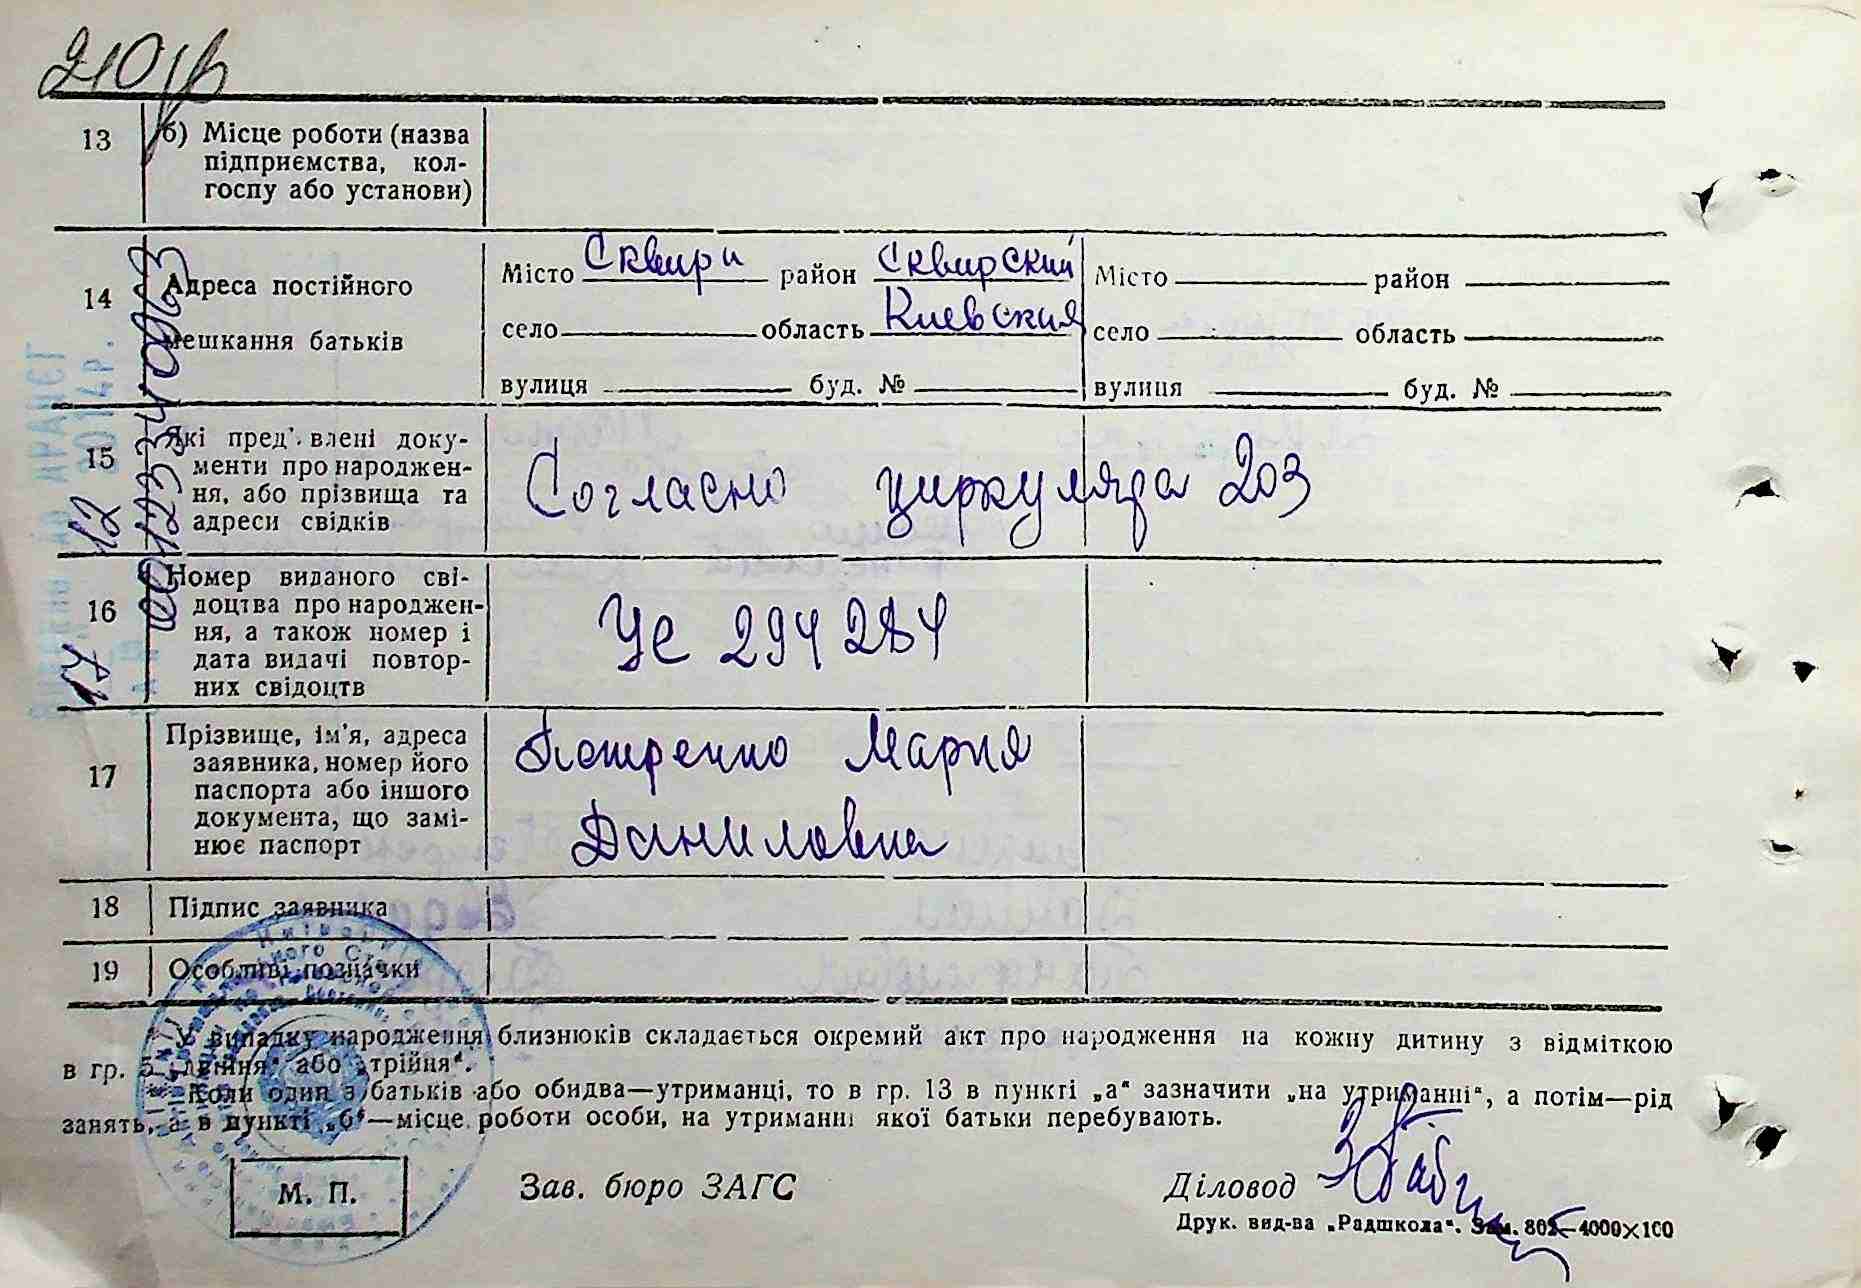 210
13 б) Місце роботи (назва
підприємства, кол-
госпу або установи)
14 Адреса постійного
мешкання батьків
Місто Сквири район Сквирский
село область Киевския
вулиця буд. №
Місто район
село область
вулиця буд. №
15 Які пред'влені доку-
менти про народжен-
ня, або прізвища та
адреси свідків
Согласно циркуляра 203
16 Номер виданого сві-
доцтва про народжен-
ня, а також номер і
дата видачі повтор-
них свідоцтв
УС 294284
17 Прізвище, ім'я, адреса
заявника, номер його
паспорта або іншого
документа, що замі-
нює паспорт
Петренко Мария
Даниловна
18 Підпис заявника
19 Особливі позначки
У випадку народження близнюків складається окремий акт про народження на кожну дитину з відміткою
в гр. 5 „двійня“ або „трійня“.
Коли один з батьків або обидва—утриманці, то в гр. 13 в пункті „а“ зазначити „на утриманні“, а потім—рід
занять, а в пункті „б“—місце роботи особи, на утриманні якої батьки перебувають.
М. П.
Зав. бюро ЗАГС
Діловод
Друк. вид-ва „Радшкола“. Зам. 802—4000×100
17 12
00123340963
2014р.